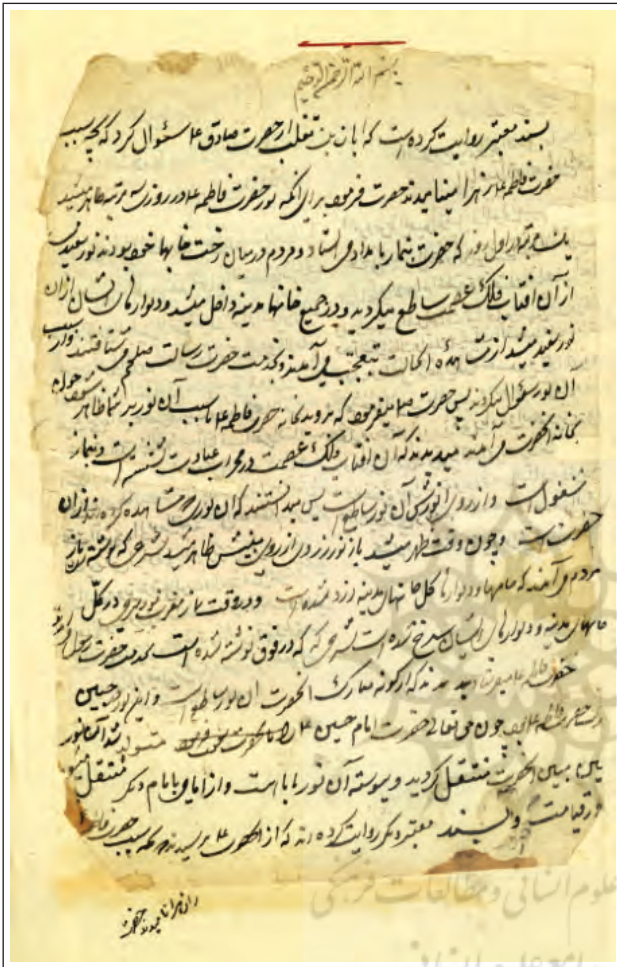 بسم الله الرحمن الرحیم
بسند معتبر روایت کرده است که ابان بن تغلب از حضرت صادق ع سئوال کرد که بچه سبب
حضرت فاطمه ع را زهرا مینامیدند حضرت فرمود برای انکه نور حضرت فاطمه ع در روزی سه مرتبه ظاهر میشد
یک مرتبه در اول روز که حضرت بنماز بامداد می استاد و مردم در میان رخت خابها خود بودند نور سفیدی
از آن افتاب فلک عصمت ساطع میگردید و در جمیع خانها مدینه داخل میشد و دیوارهای ایشان از ان
نور سفید میشد از مشاهده انحالت بتعجب می آمدند و بخدمت حضرت رسالت صلعم می شتافتند و از سبب
ان نور سئوال میکردند پس حضرت ص میفرمود که بروید بخانه حضرت فاطمه ع تا سبب آن نور بر شما ظاهر شود چون
بخانه انحضرت می آمدند میدیدند که آن افتاب فلک عصمت در محراب عبادت نشسته است و بنماز
مشغول است و از روی انورش آن نور ساطع است پس میدانستند که ان نوری که مشاهده کرده اند از ان
حضرت است و چون وقت ظهر میشد باز نور زردی از روی مبینش ظاهر میشد بشرحی که نوشته شد باز
مردم می آمدند که جامهها و دیوارها کل خانهای مدینه زرد شده است و در وقت نماز مغرب نور سرخی در کل
خانهای مدینه و دیوارهای ایشان سرخ شده است بشرحی که در فوق نوشته شده است بخدمت حضرت رسول
حضرت فاطمه ع میرفتند دیدند که از گونه مبارک انحضرت ان نور ساطع است و این نور در جبین
حضرت فاطمه ع بود چون حق تعالی حضرت امام حسین ع متولد شد آن نور
بجبین مبین انحضرت منتقل گردید و پیوسته آن نور با ما است و از امامی بامام دیگر منتقل میشود
روز قیامت و بسند معتبر دیگر روایت کرده اند که از انحضرت ع پرسیدند که بچه سبب حضرت فاطمه
را زهرا نامیدند حضرت
علوم انسانی و مطالعات فرهنگی
جامع علوم انسانی